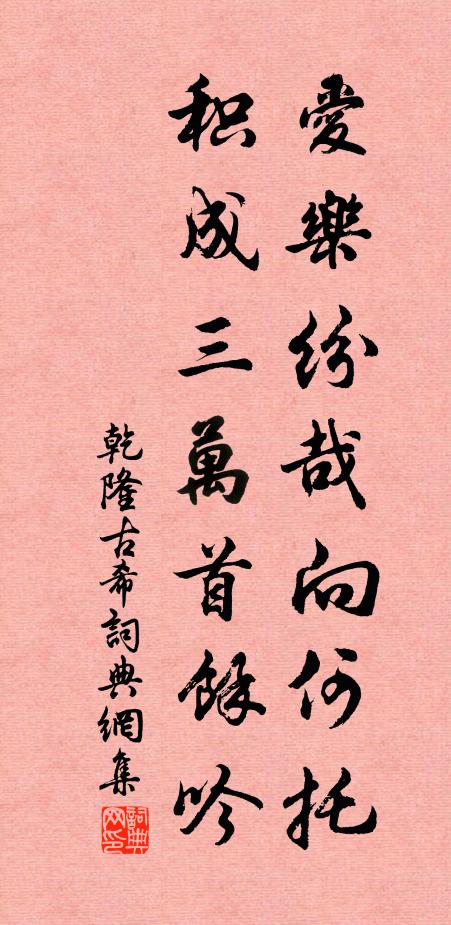 愛樂紛哉向何托
积成三萬首餘吟
乾隆古希詞典網集
詞典网印